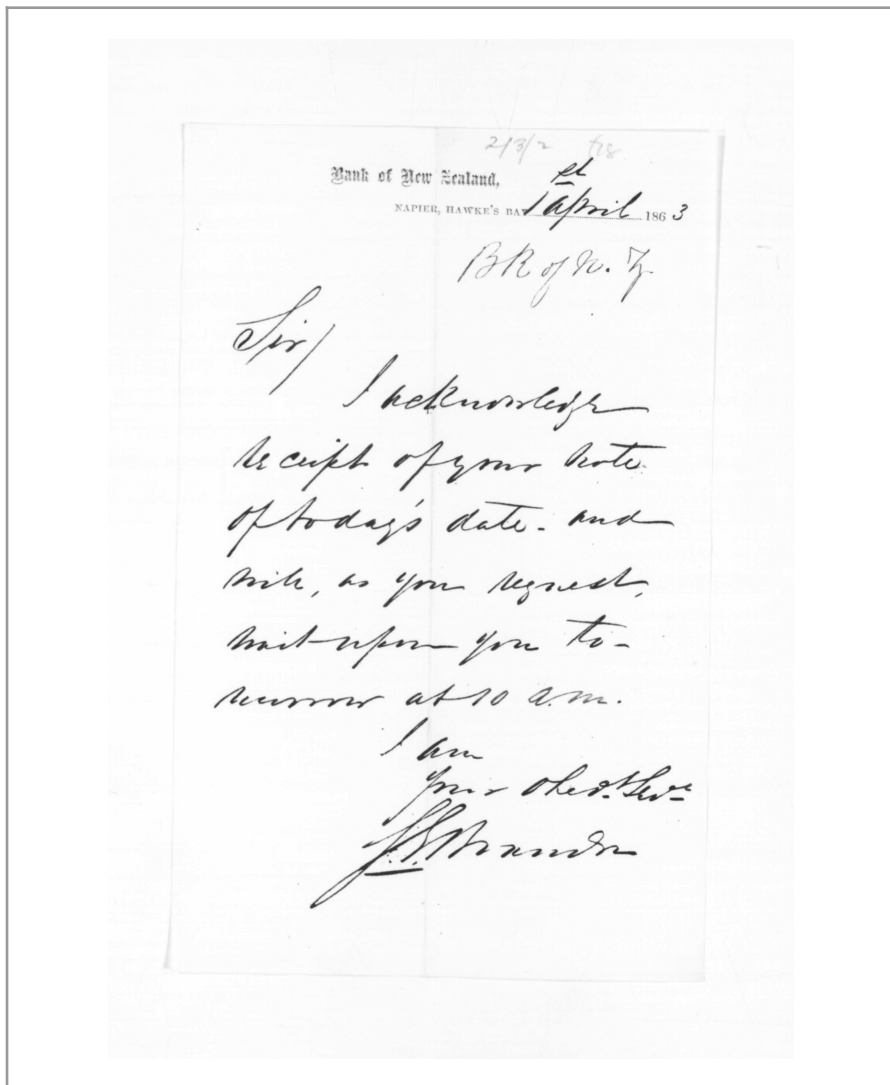 2/3/2
Bank of New Zealand,
NAPIER, HAWKE'S BAY 1st April 1863
Bk of N. Z.
Sir/
I acknowledge
receipt of your note
of today's date - and
will, as you request,
wait upon you to-
morrow at 10 a.m.
I am
Your Obedt. Servt.